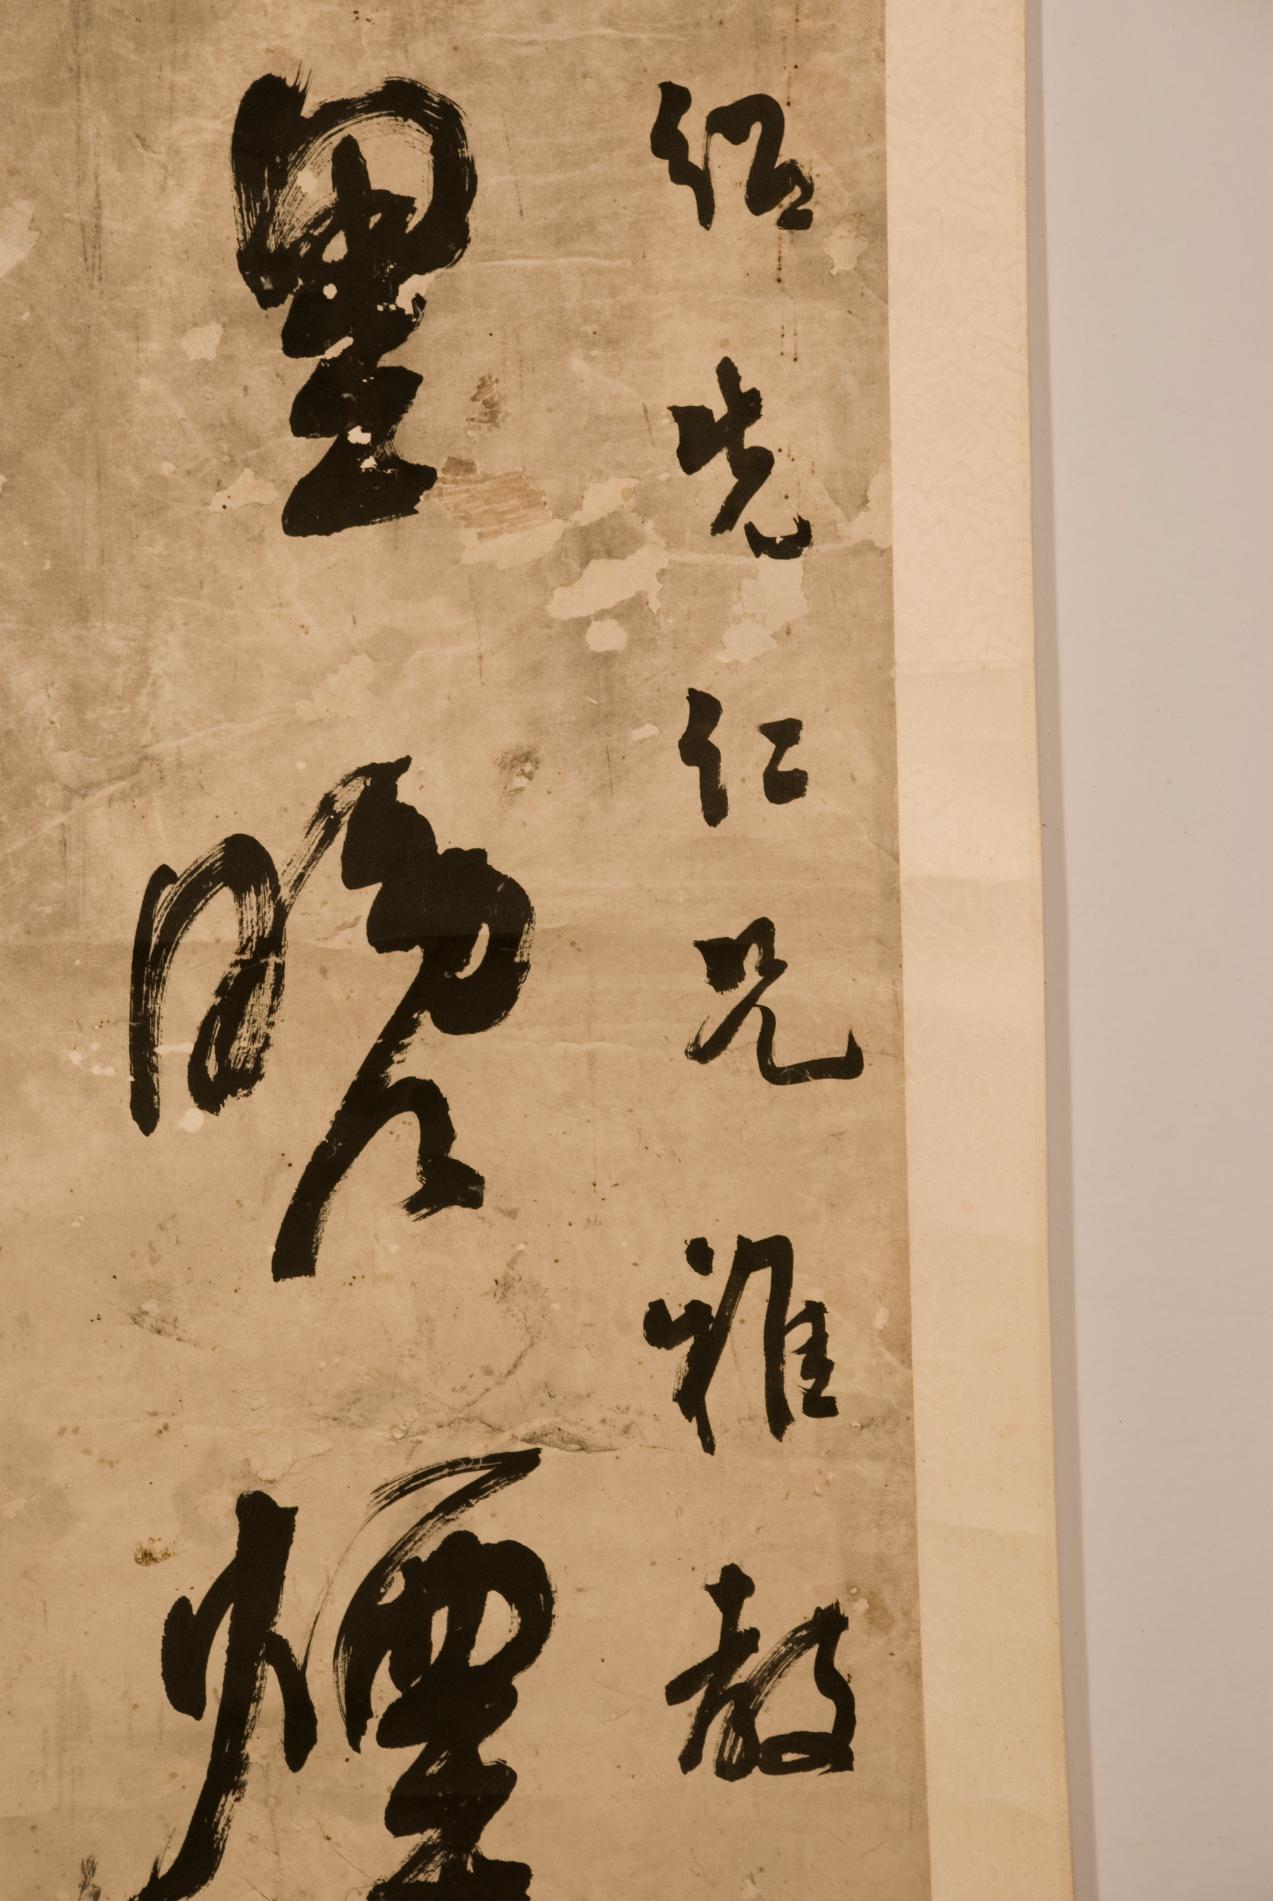 紹先仁兄雅教
墨晚煙